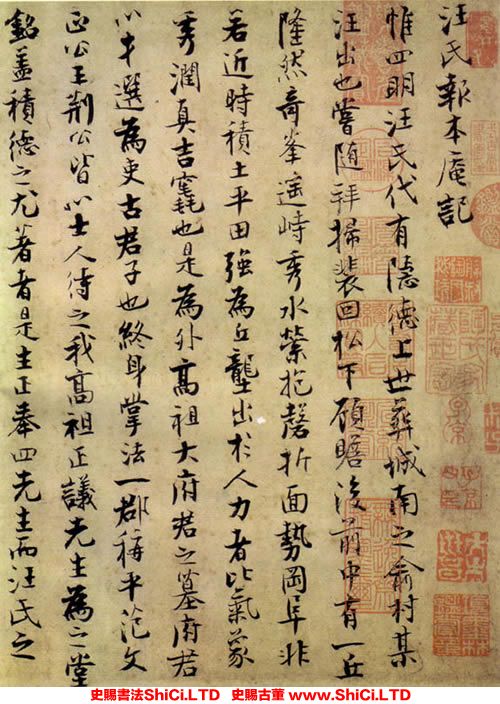 汪氏報本庵記
惟四明汪氏代有隱德上世葬城南之俞村某
汪出也嘗隨拜掃裴回松下顧瞻後前中有一丘
隆然奇峯遥峙秀水縈抱磬折面勢岡阜非
若近時積土平田強為丘壟出於人力者比氣蒙
秀潤真吉竁也是為外高祖大府君之墓府君
以才選為吏古君子也終身掌法一郡稱平范文
正公王荆公皆以士人待之我高祖正議先生為之堂
銘盖積德之尤著者是生正奉四先生而汪氏之
史賜書法ShiCi.LTD 史賜古董 www.ShiCi.LTD